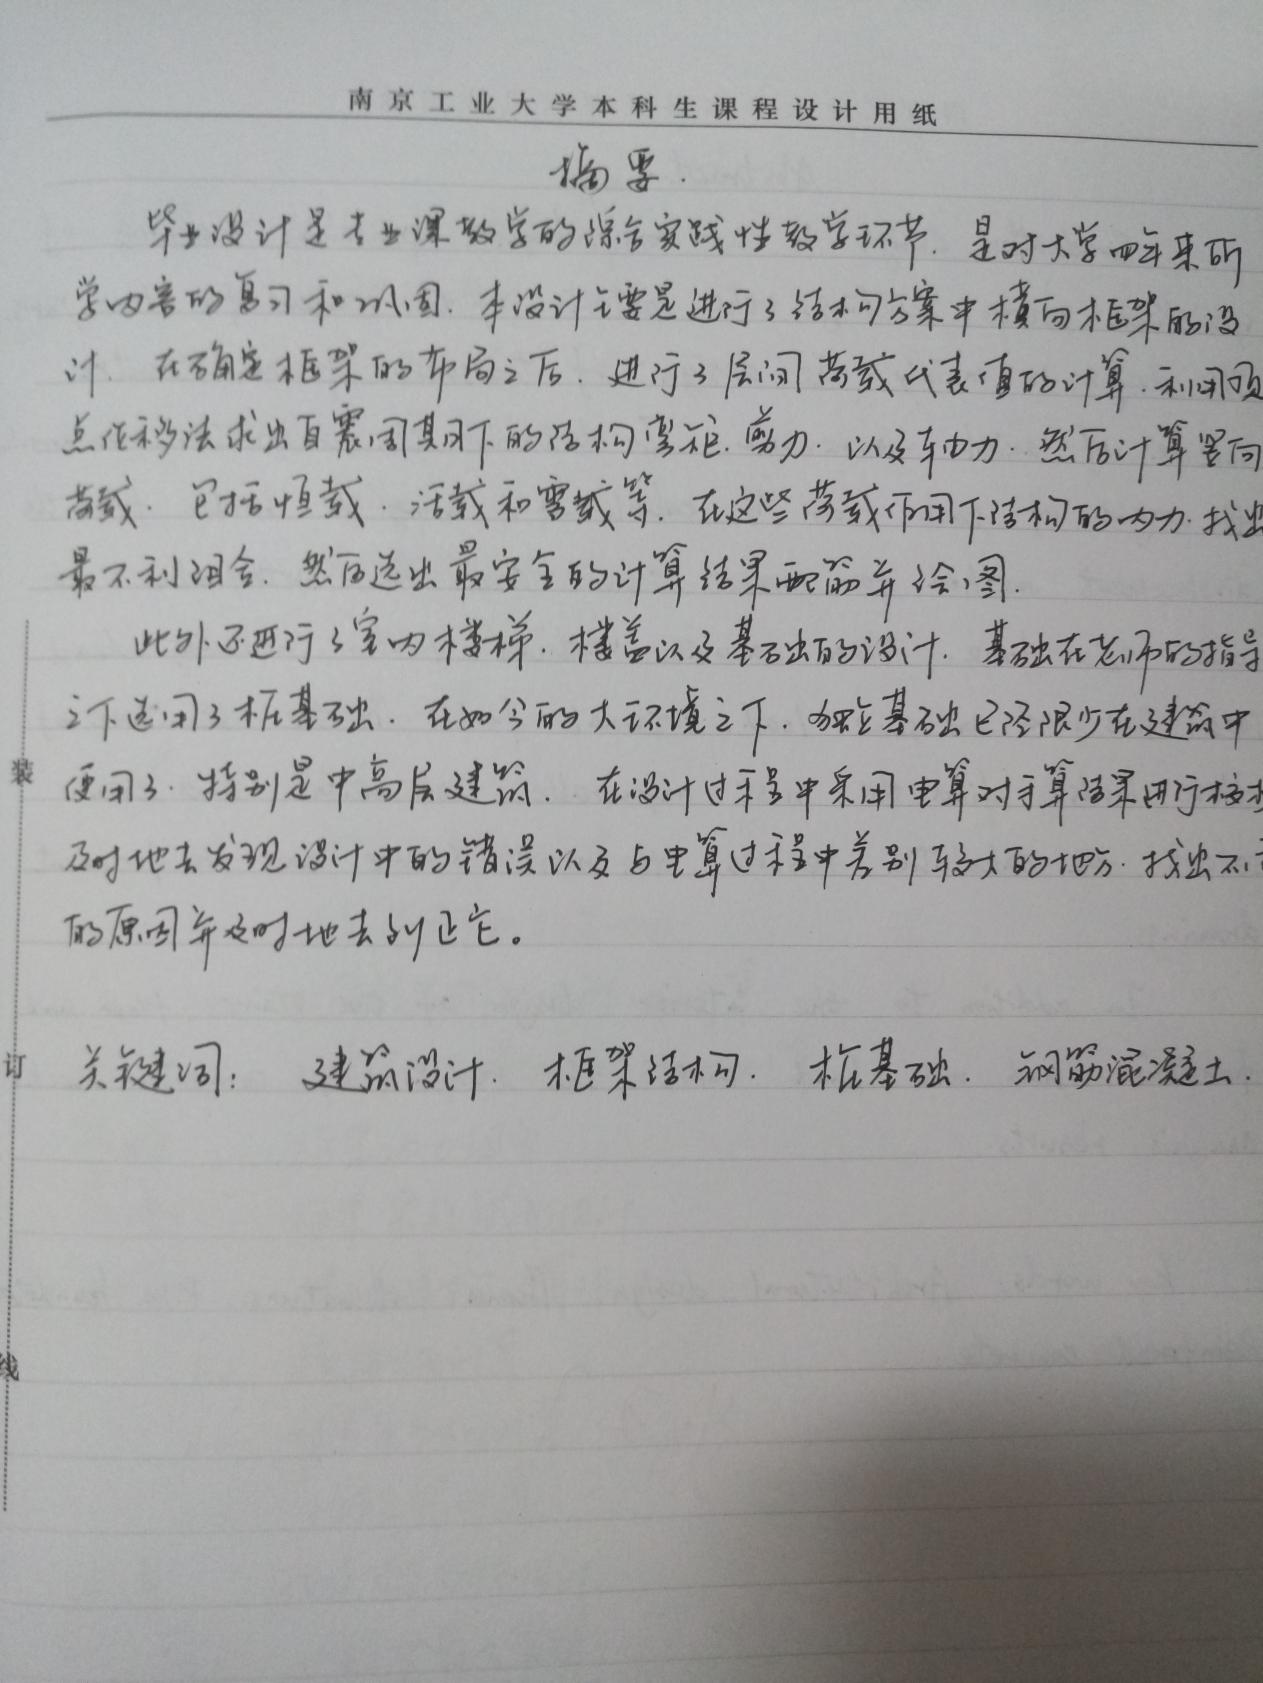 南京工业大学本科生课程设计用纸
摘要.
毕业设计是专业课教学的综合实践性教学环节. 是对大学四年来所
学内容的复习和巩固. 本设计主要是进行了结构方案中横向框架的设
计. 在确定框架的布局之后. 进行了层间荷载代表值的计算. 利用顶
点位移法求出自震周期下的结构弯矩. 剪力. 以及轴力. 然后计算竖向
荷载. 包括恒载. 活载和雪载等. 在这些荷载作用下结构的内力. 找出
最不利组合. 然后选出最安全的计算结果配筋并绘图.
此外还进行了室内楼梯. 楼盖以及基础的设计. 基础在老师的指导
之下选用了桩基础. 在如今的大环境之下. 独立基础已经很少在建筑中
使用了. 特别是中高层建筑. 在设计过程中采用电算对手算结果进行校核
及时地去发现设计中的错误以及与电算过程中差别较大的地方. 找出不
的原因并及时地去纠正它。
关键词: 建筑设计. 框架结构. 桩基础. 钢筋混凝土.
装
订
线